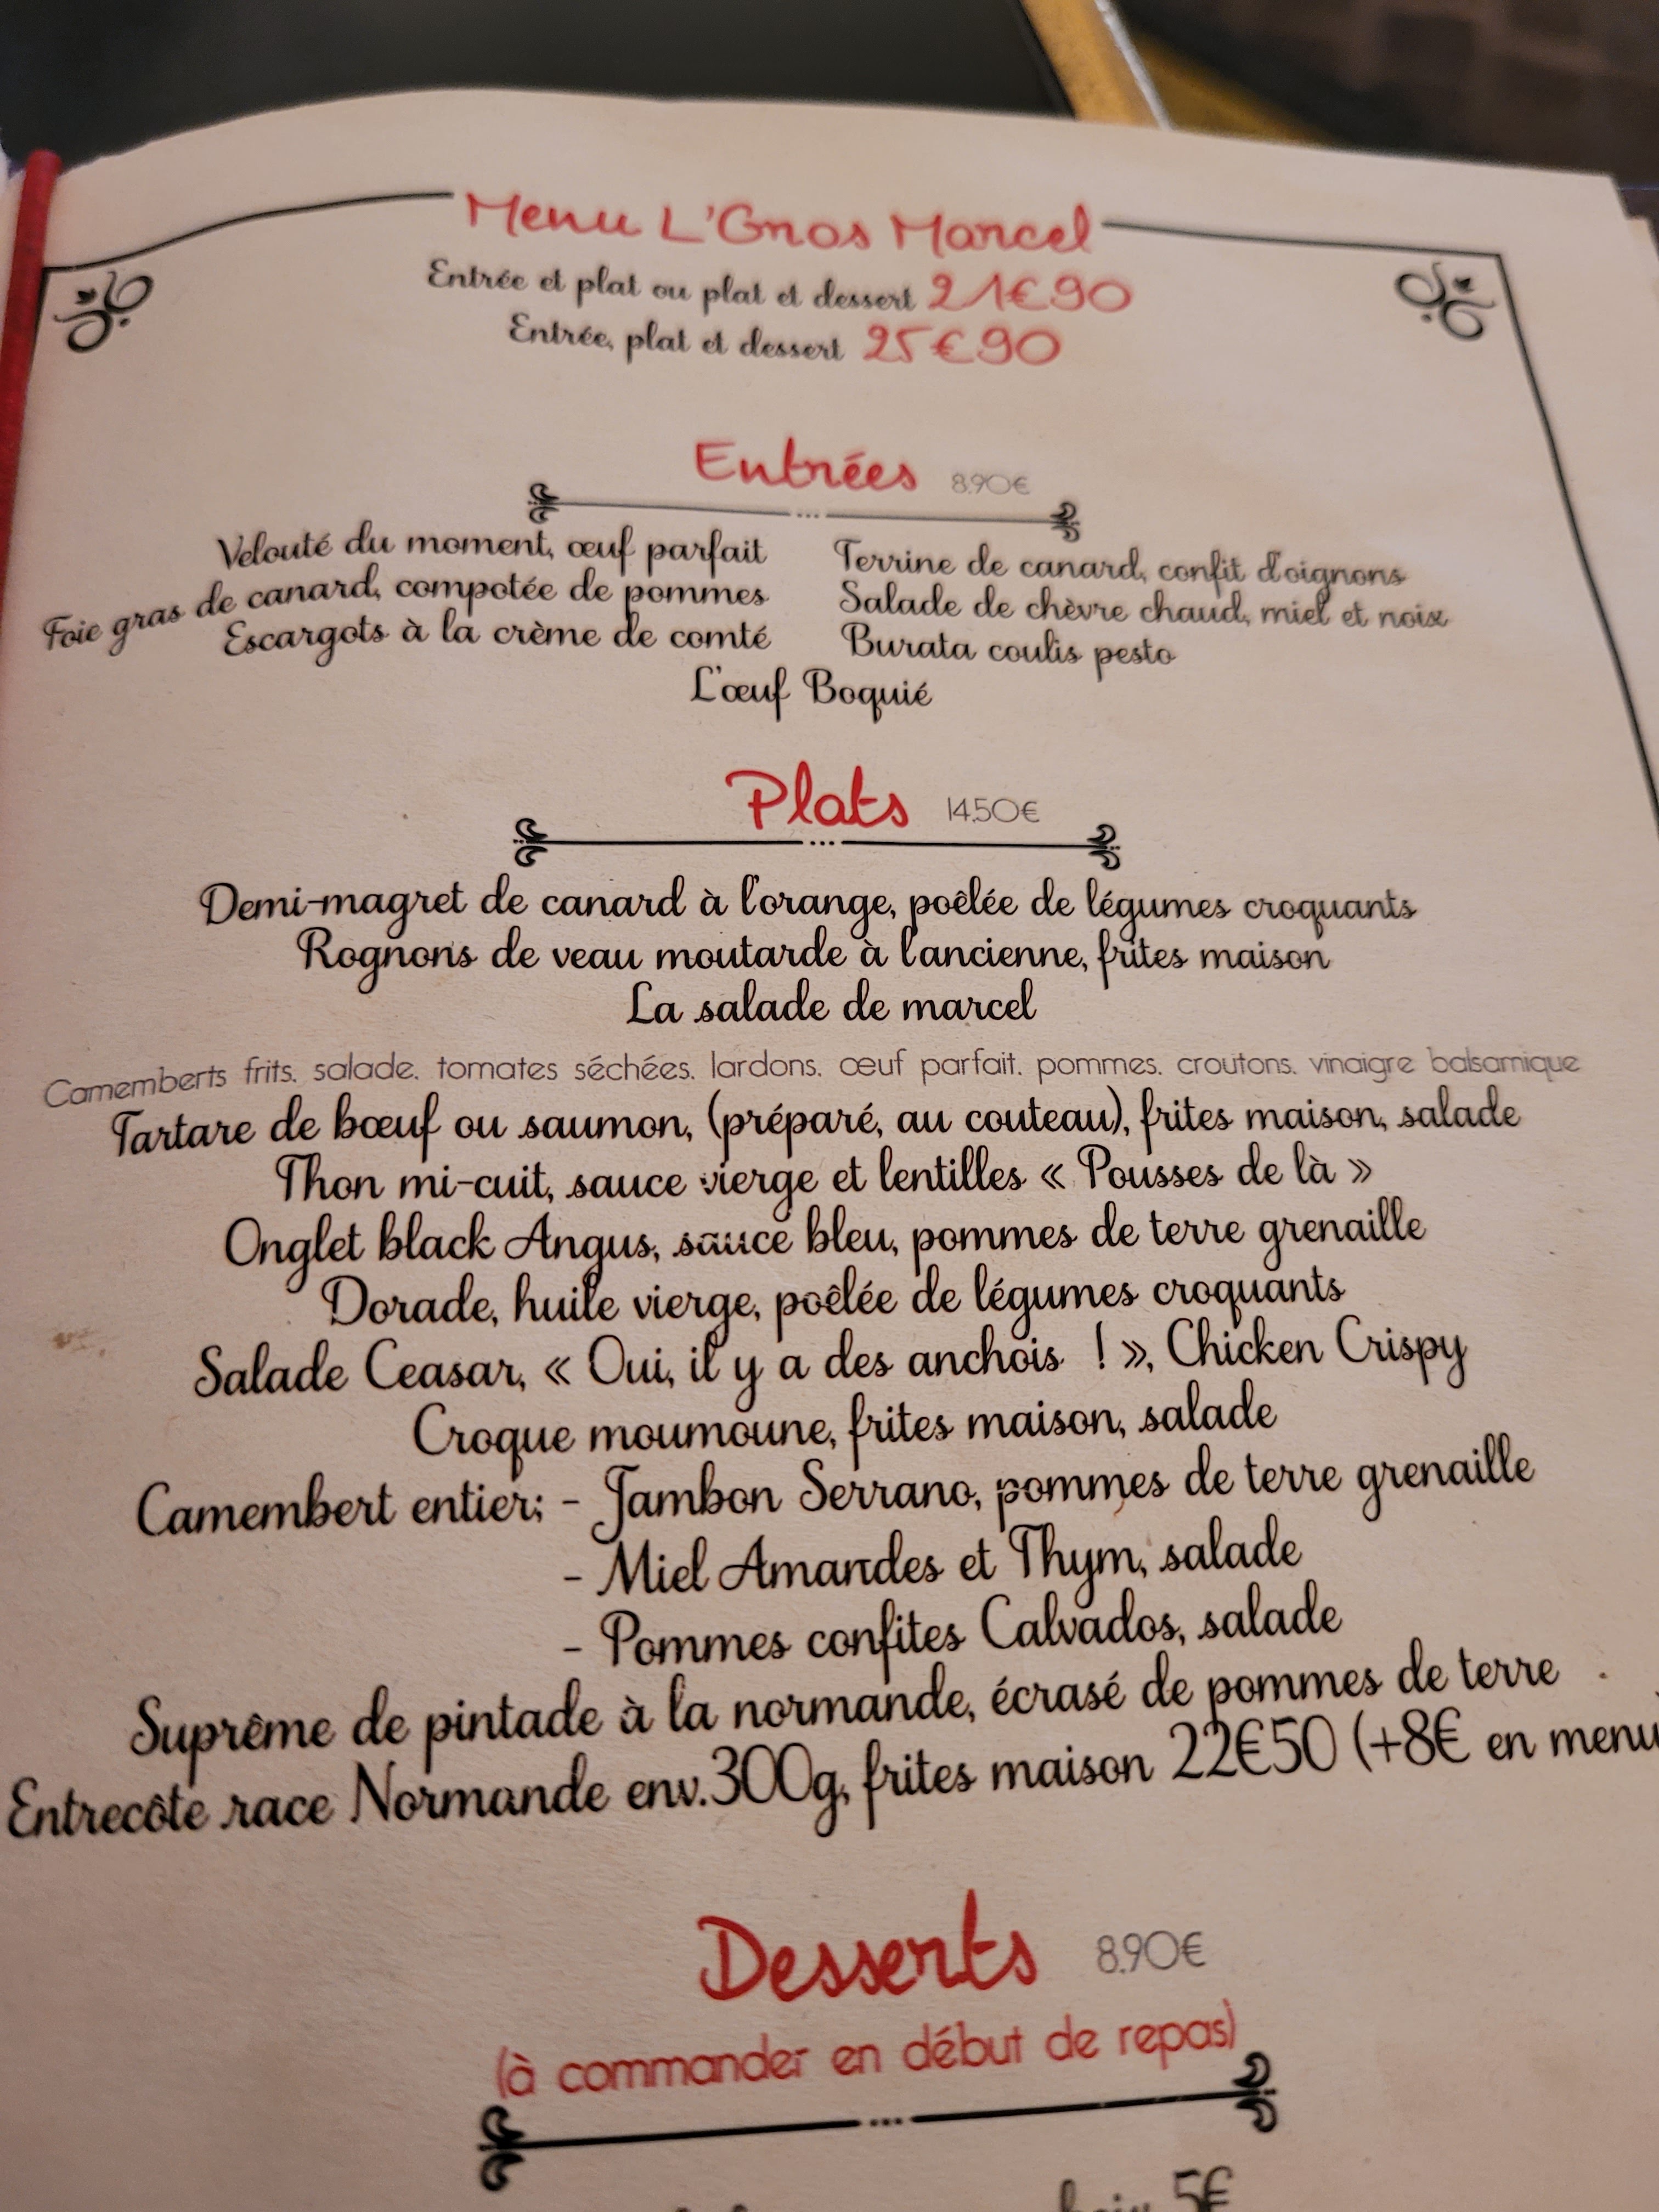 Menu L'Gros Marcel
Entrée et plat ou plat et dessert 21€90
Entrée, plat et dessert 25€90
Entrées 8.90€
Velouté du moment, œuf parfait
Foie gras de canard, compotée de pommes
Escargots à la crème de comté
Terrine de canard, confit d'oignons
Salade de chèvre chaud, miel et noix
Burata coulis pesto
L'œuf Boquié
Plats 14.50€
Demi-magret de canard à l'orange, poêlée de légumes croquants
Rognons de veau moutarde à l'ancienne, frites maison
La salade de marcel
Camemberts frits, salade, tomates séchées, lardons, œuf parfait, pommes, croutons, vinaigre balsamique
Tartare de bœuf ou saumon, (préparé, au couteau), frites maison, salade
Thon mi-cuit, sauce vierge et lentilles « Pousses de là »
Onglet black Angus, sauce bleu, pommes de terre grenaille
Dorade, huile vierge, poêlée de légumes croquants
Salade Ceasar, « Oui, il y a des anchois ! », Chicken Crispy
Croque moumoune, frites maison, salade
Camembert entier; - Jambon Serrano, pommes de terre grenaille
- Miel Amandes et Thym, salade
- Pommes confites Calvados, salade
Suprême de pintade à la normande, écrasé de pommes de terre
Entrecôte race Normande env.300g, frites maison 22€50 (+8€ en menu
Desserts 8.90€
(à commander en début de repas)
5€